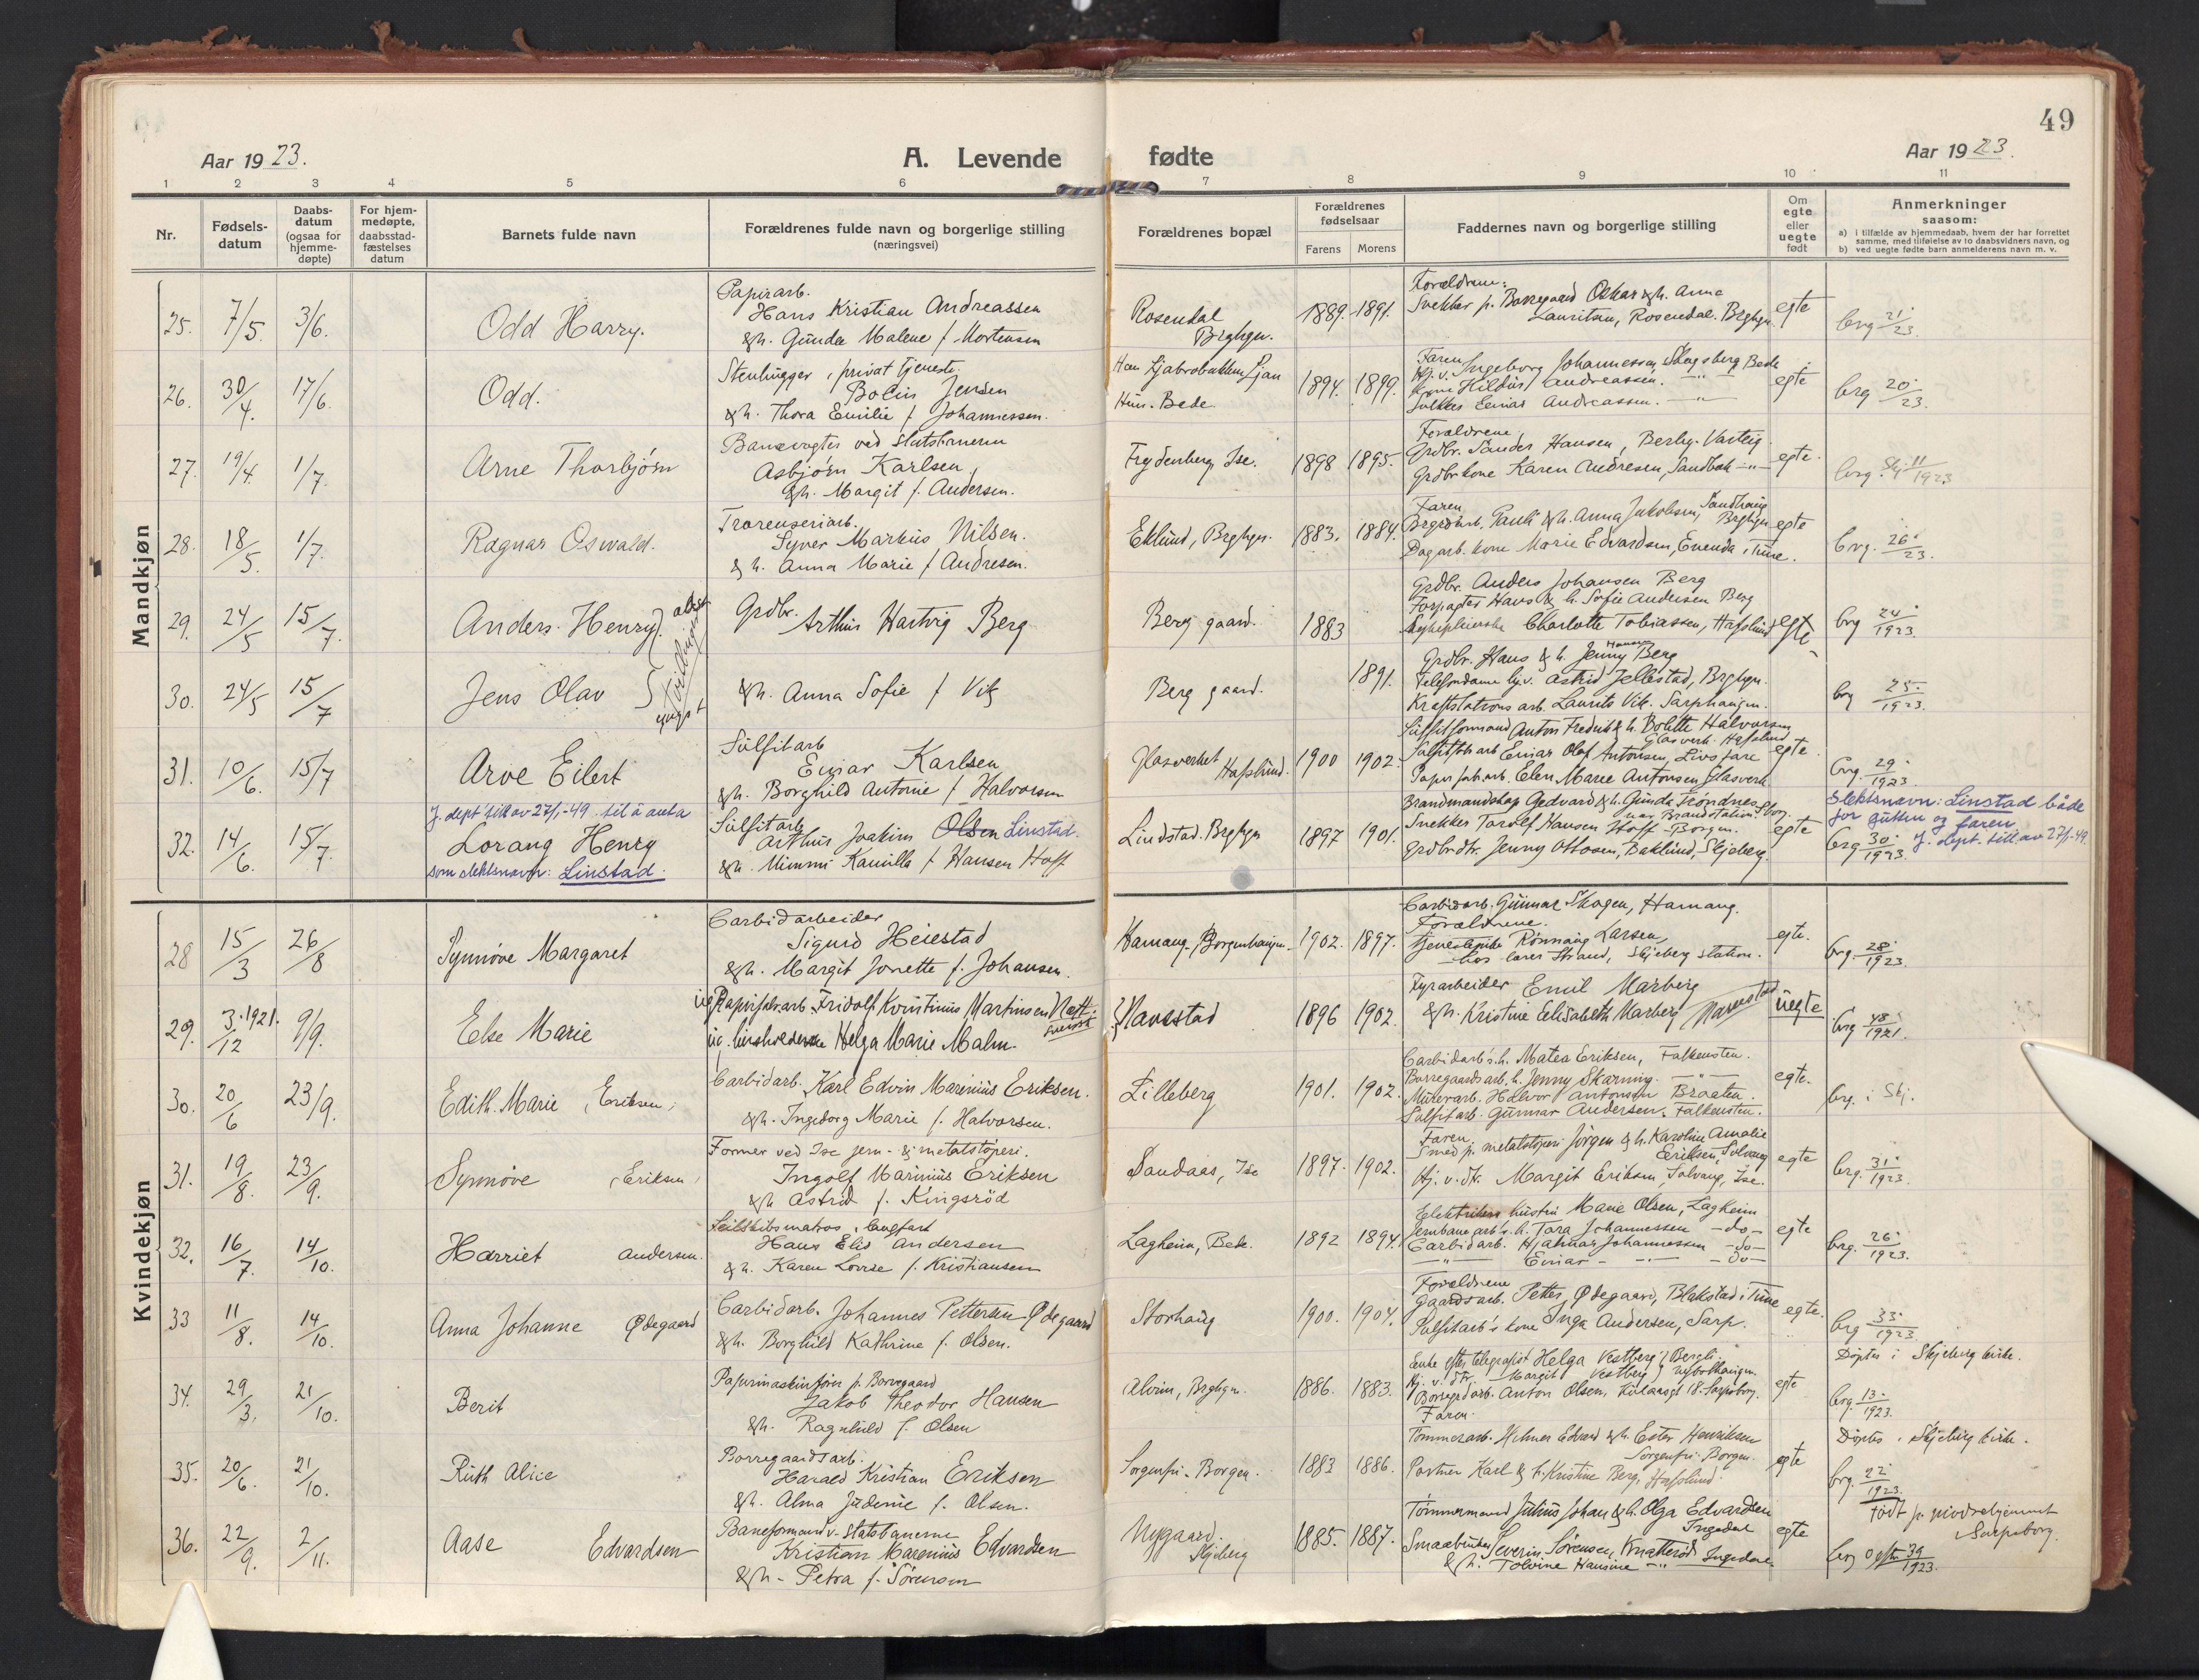 49
Aar 1923.
A. Levende fødte
Aar 1923.
1 2 3 4 5 6 7 8 9 10 11
Nr.
Fødsels-
datum
Daabs-
datum
(ogsaa for
hjemme-
døpte)
For hjem-
medøpte,
daabsstad-
fæstelses
datum
Barnets fulde navn
Forældrenes fulde navn og borgerlige stilling
(næringsvei)
Forældrenes bopæl
Forældrenes
fødselsaar
Farens Morens
Faddernes navn og borgerlige stilling
Om
egte
eller
uegte
født
Anmerkninger
saasom:
a) i tilfælde av hjemmedaab, hvem der har forrettet
samme, med tilføielse av to daabsvidners navn, og
b) ved uegte fødte barn anmelderens navn m. v.
Mandkjøn
25. 7/5. 3/6. Odd Harry.
Papirarb.
Hans Kristian Andreassen
& h. Gunda Malene f. Mortensen
Rosendal
Brghgn.
1889. 1891.
Forældrene.
Snekker p. Borregaard Oskar & h. Anna
Lauritsen, Rosendal. Brghgn.
egte
brg 21/23.
26. 30/4. 17/6. Odd.
Stenhugger i privat tjeneste.
Bolin Jensen
& h. Thora Emilie f. Johannessen.
Han Ljabrobakken Ljan
Hun. Bede
1894. 1899.
Faren
Hj.v. Ingeborg Johannessen, Skogsberg Bede
kone Hildur Andreassen. — " —
Snekker Einar Andreassen. — " —
egte
brg 20/23.
27. 19/4. 1/7. Arne Thorbjørn
Banevogter ved statsbanerne
Asbjørn Karlsen,
& h. Margit f. Andersen.
Frydenberg, Ise.
1898 1895.
Forældrene,
Grdbr. Sander Hansen, Berby. Varteig.
Grdbr.kone Karen Andresen, Sandbæk — " —
egte.
brg. Skj. 11/1923
28. 18/5. 1/7. Ragnar Oswald.
Syver Markus Nilsen.
& h. Anna Marie f. Andresen.
Eklund, Brghgn.
1883. 1884.
Faren
Brgrdarb. Pauli & h. Anna Jakobsen, Sandhaug
Brghgn
Dagarb. kone Marie Edvardsen, Evenda i Tune.
egte
brg. 26/23.
29. 24/5 15/7. Anders Henry
ældst
tvillinger
yngst
Grdbr.
Arthur Hartvig Berg
Berg gaard.
1883
Grdbr. Anders Johansen Berg
Forpagter Hans & h. Sofie Andersen Berg
Sykepleierske Charlotte Tobiassen, Hafslund
egte
brg 24/1923.
30. 24/5 15/7 Jens Olav
& h. Anna Sofie f. Vik
Berg gaard.
1891.
Grdbr. Hans & h. Jenny Hansen Berg
Telefondame hj.v. Astrid Jellestad, Brghgn.
Kraftstations arb. Laurits Vik. Sarphaugen.
brg 25/1923.
31. 10/6. 15/7 Arve Eilert
Sulfitarb
Einar Karlsen
& h. Borghild Antonie f. Halvorsen
Glasverket Hafslund.
1900 1902.
Sulfitformand Anton Fredrik & h. Bolette Halvorsen
Glasverk. Hafslund
Sulfitfab arb Einar Olaf Antonsen,
Papir fab.arb. Elen Marie Antonsen Glasverk.
egte.
brg. 29/1923.
J. dept' till av 27/1-49. til å anta
32. 14/6. 15/7. Lorang Henry
som slektsnavn: Linstad.
Sulfitarb
Arthur Joakim Olsen Linstad.
& h. Mimmi Kamilla f. Hansen Hoff
Lindstad. Brghgn
1897 1901.
Brandmandskap Gedvard & h. Gunda Trøndnes
nær Brandstation. Sborg.
Snekker Tarolf Hansen Hoff – Borgen.
Grdbr.dtr. Jenny Ottosen, Baklund, Skjeberg.
egte
Slektsnavn: Linstad både
for gutten og faren
J. dept. till av 27/1-49.
brg 30/1923.
Kvindekjøn
28 15/3 26/8 Synnøve Margaret
Carbidarbeider
Sigurd Heiestad
& h. Margit Jonette f. Johansen.
Hamang – Borgenhaugen.
1902. 1897.
Carbidarb. Gunnar Skogen, Hamang.
Forældrene.
Tjenestepike Rønnaug Larsen,
hos lærer Strand, Skjeberg station.
egte.
brg. 28/1923.
29. 3/12 1921. 9/9. Else Marie
ug. Papirfabr.arb. Fridolf Kvintinus Martinsen
ug. husholderske Helga Marie Malm.
Navestad
1896 1902.
Fyrarbeider Emil Marberg
& h. Kristine Elisabeth Marberg Navestad
uegte
brg 48/1921.
30. 20/6 23/9. Edith Marie (Eriksen)
Carbidarb. Karl Edvin Marenius Eriksen.
& h. Ingeborg Marie f. Halvorsen.
Lilleberg
1901. 1902.
Carbidarb's h. Matea Eriksen, Falkensten.
Borregaardsarb. h. Jenny Skarning. — " —
Murerarb. Halvor Antonsen Braaten.
Sulfitarb. Gunnar Andersen. Falkensten.
egte.
brg. i Skj.
31. 19/8. 23/9. Synnøve (Eriksen)
Former ved Ise jern- & metalstøperi.
Ingolf Marinius Eriksen
& h Astrid f. Kingsrød
Sandaas, Ise
1897. 1902.
Faren.
Smed p. metalstøperi Jørgen & h. Karoline Amalie
Eriksen, Solvang
Hj. v. dtr. Margit Eriksen, Solvang, Ise.
egte
brg. 31/1923.
32. 16/7. 14/10. Harriet Andersen.
Seilskibsmatros i langfart
Hans Elis Andersen
& h. Karen Lovise f. Kristiansen
Lagheim, Bede.
1892 1894.
Elektriker hustru Marie Olsen, Lagheim
Jernbanearb's h. Tora Johannessen – do –
Carbidarb. Hjalmar Johannessen – do –
— " — Einar – — " — – do –
egte
brg. 26/1923.
33 11/8. 14/10. Anna Johanne Ødegaard
Carbidarb. Johannes Pettersen Ødegaard
& h. Borghild Kathrine f. Olsen.
Storhaug
1900. 1904.
Forældrene
Gaardsarb. Petter Ødegaard, Blakstad i Tune
Sulfitarb's kone Inga Andersen, Sarp.
egte.
brg 33/1923.
34. 29/3. 21/10. Berit
Papirmaskinfører p. Borregaard
Jakob Theodor Hansen
& h. Ragnhild f. Olsen
Alvim, Brghgn.
1886. 1883.
Enke efter telegrafist Helga Vestberg f. Bergli.
Hj. v. dtr. Margit Vestberg
Borregrdarb. Anton Olsen, 18. Sarpsborg.
Faren
egte
Døptes i Skjeberg kirke.
brg. 13/1923.
35. 20/6. 21/10. Ruth Alice
Borregaardsarb.
Harald Kristian Eriksen
& h. Alma Judenie f. Olsen.
Sorgenfri – Borgen.
1883 1886.
Tømmerarb. Hilmer Edvard & h. Ester Henriksen
Sorgenfri – Borgen.
Portner Karl & h. Kristine Berg, Hafslund
egte
Døptes i Skjeberg kirke.
brg. 22/1923.
36. 22/9. 2/11. Aase Edvardsen
Baneformand v. Statsbanerne
Kristian Marenius Edvardsen
& h – Petra f. Sørensen
Nygaard.
Skjeberg
1885. 1887.
Tømmermand Julius Johan & h. Olga Edvardsen
Ingedal
Smaabruker Severin Sørensen, Knatterød Ingedal
& h. Tolvine Hansine — " —
egte
Født p. mødrehjemmet
i Sarpsborg.
brg 39/1923.